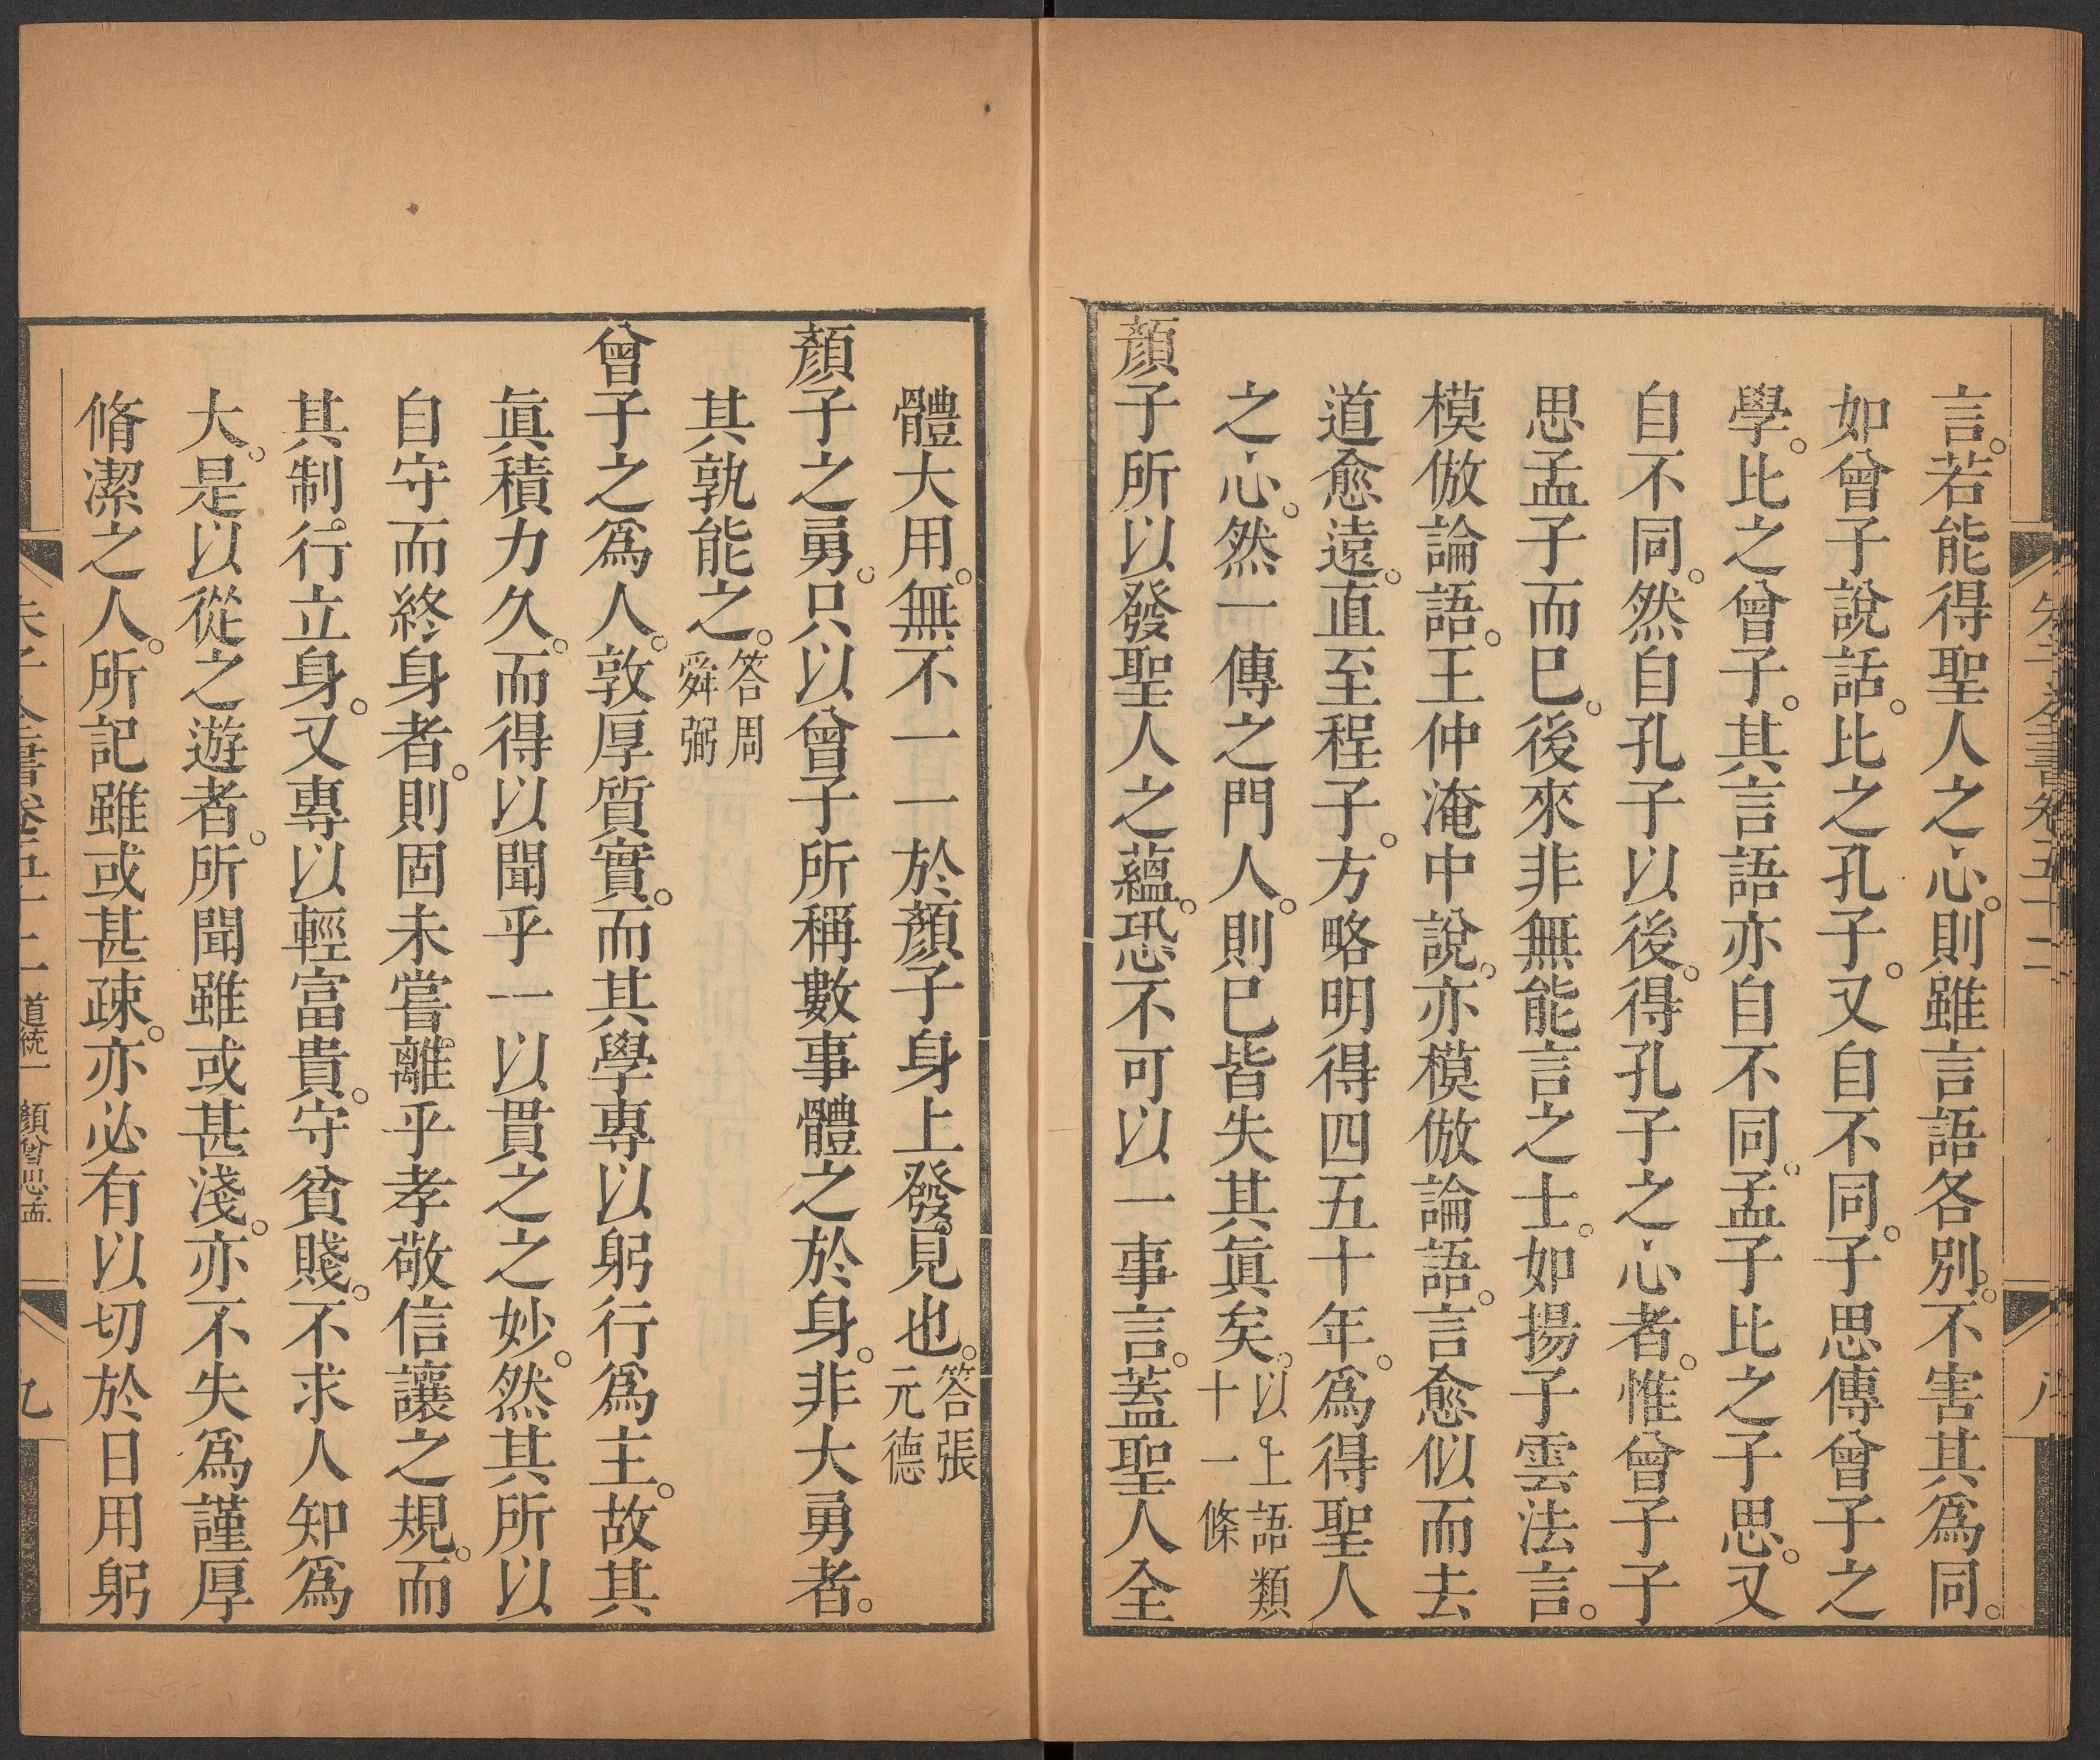 言。若能得聖人之心。則雖言語各別。不害其爲同。
如曾子說話。比之孔子。又自不同。子思傳曾子之
學。比之曾子。其言語亦自不同。孟子比之子思。又
自不同。然自孔子以後。得孔子之心者。惟曾子子
思孟子而已。後來非無能言之士。如揚子雲法言。
模倣論語。王仲淹中說。亦模倣論語。言愈似而去
道愈遠。直至程子。方略明得四五十年。爲得聖人
之心。然一傳之門人。則已皆失其眞矣。以上語類
十一條
顏子所以發聖人之蘊。恐不可以一事言。蓋聖人全
體大用。無不一一於顏子身上發見也。答張
元德
顏子之勇。只以曾子所稱數事體之於身。非大勇者。
其孰能之。答周
舜弼
曾子之爲人。敦厚質實。而其學專以躬行爲主。故其
眞積力久。而得以聞乎一以貫之之妙。然其所以
自守而終身者。則固未嘗離乎孝敬信讓之規。而
其制行立身。又專以輕富貴。守貧賤。不求人知爲
大。是以從之遊者。所聞雖或甚淺。亦不失爲謹厚
脩潔之人。所記雖或甚疎。亦必有以切於日用躬
朱子全書卷五十二 道統一 顏曾思孟
九